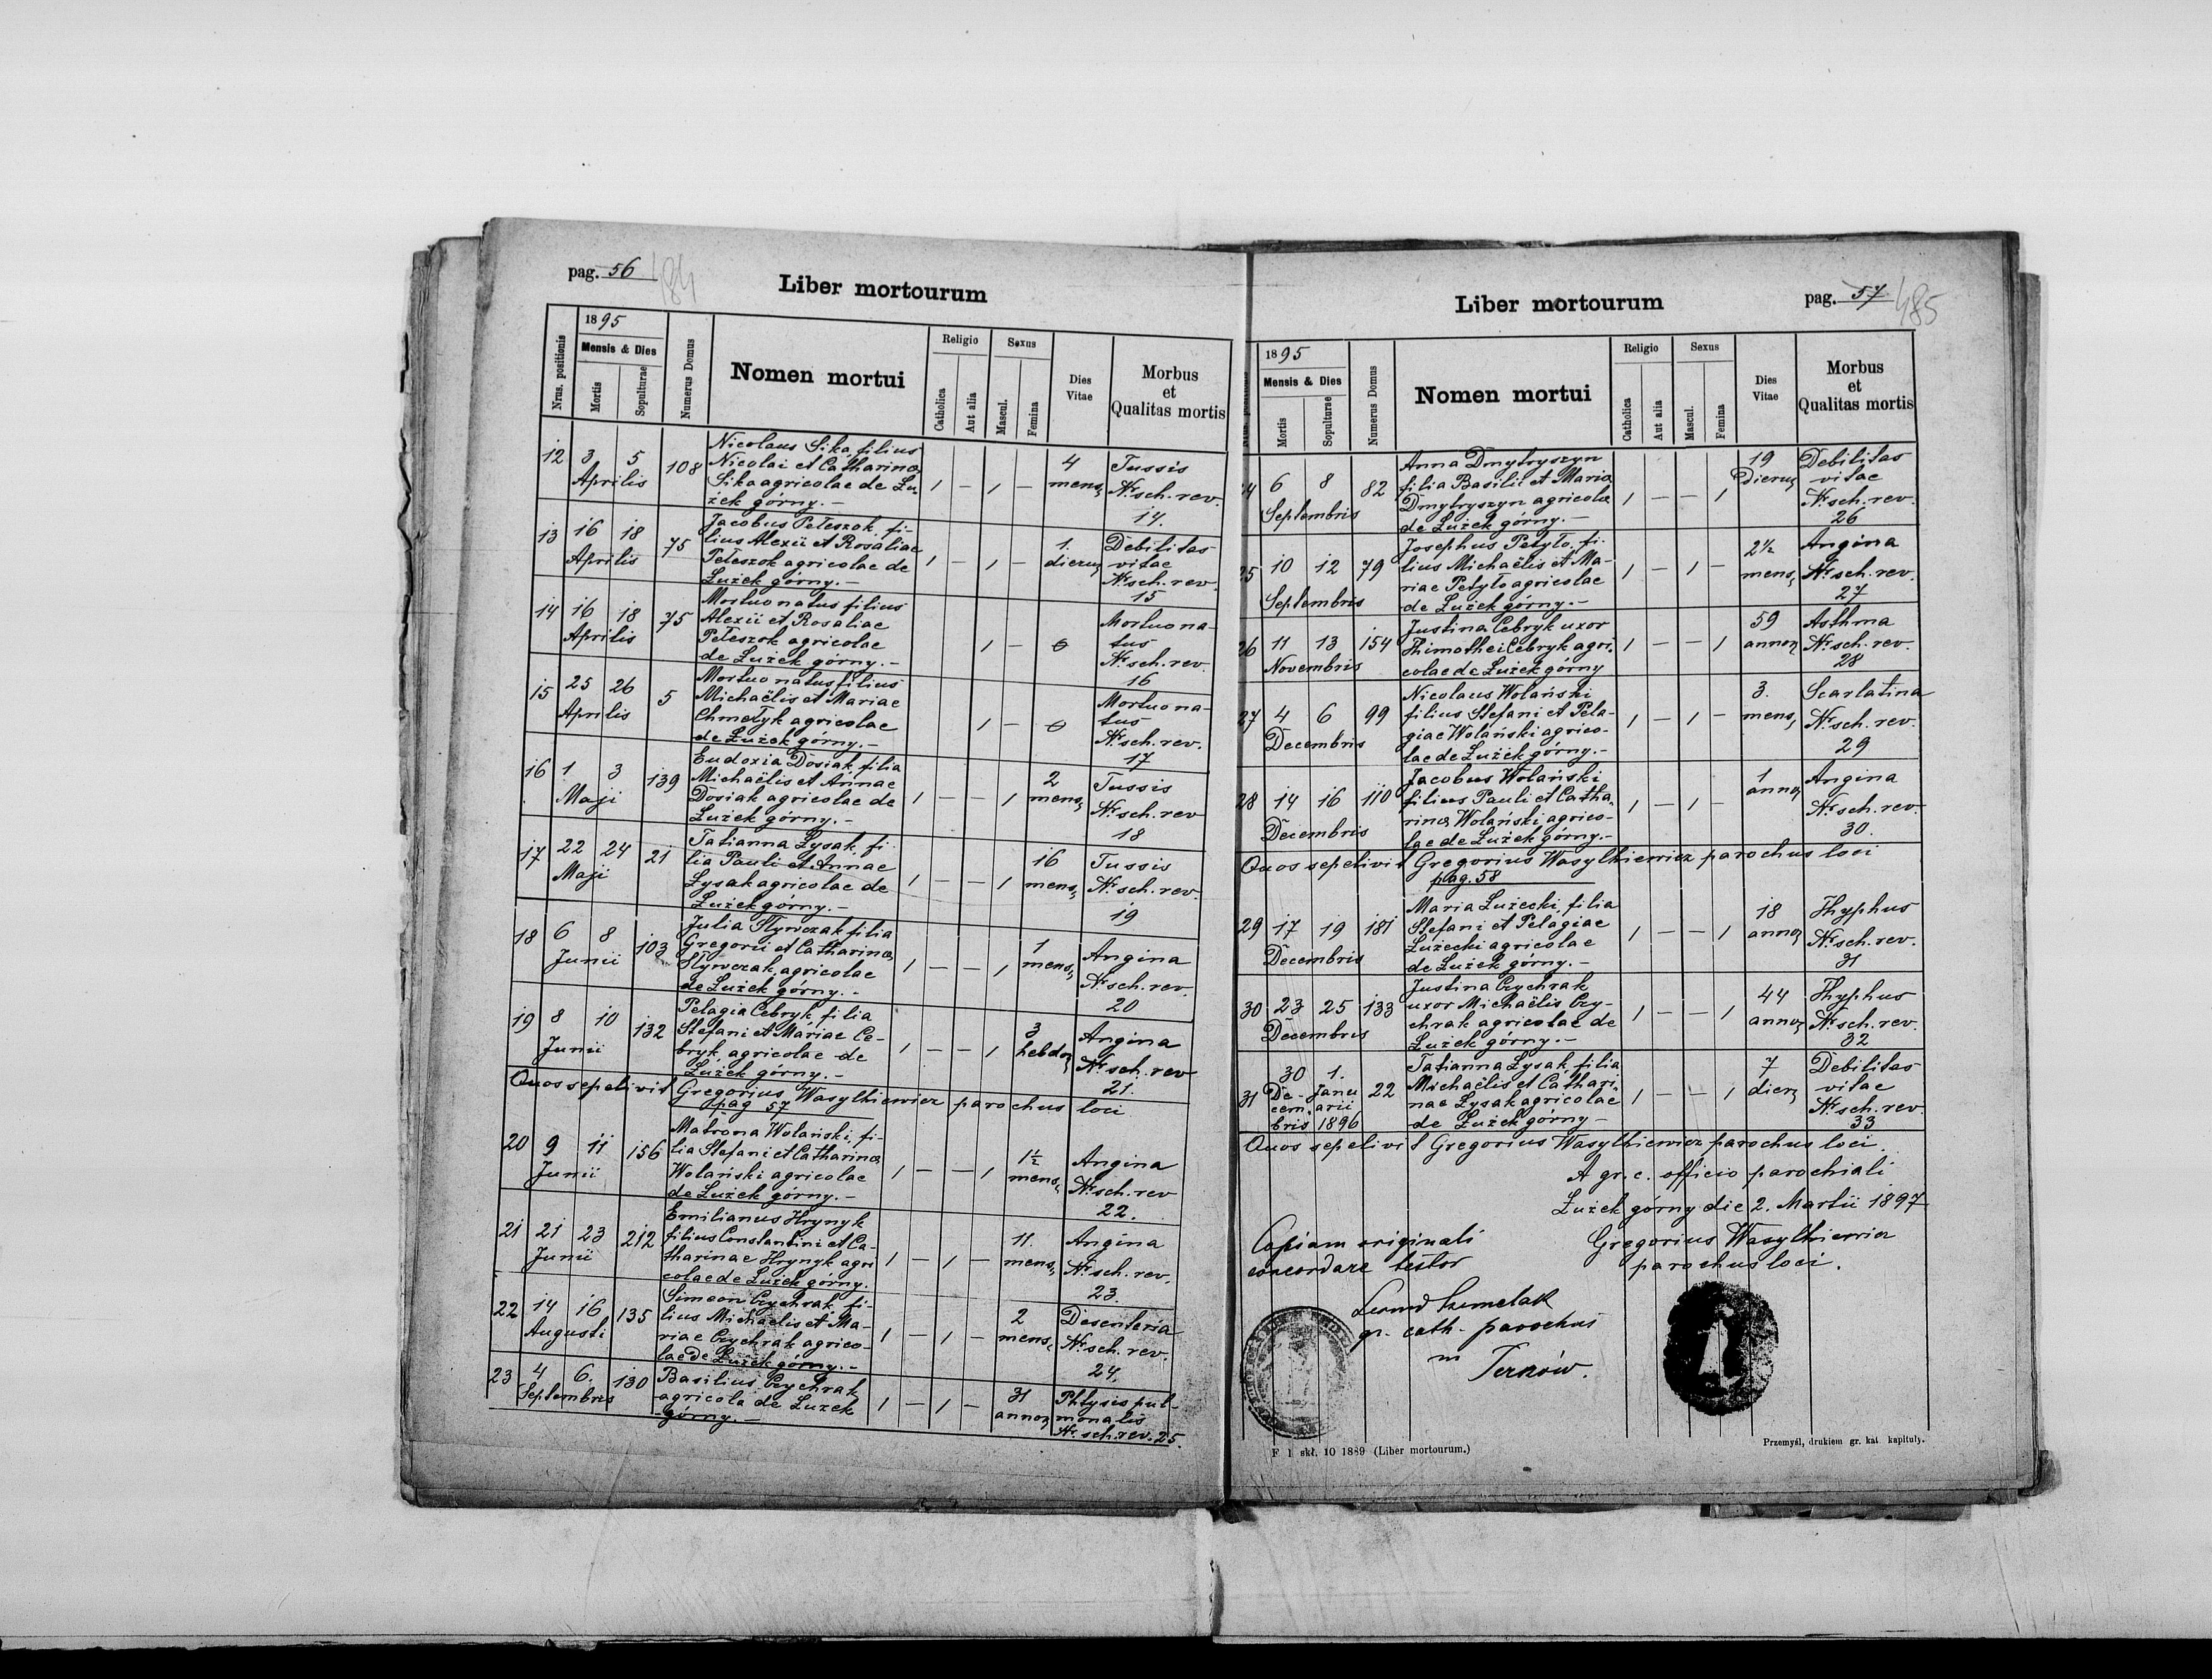 pag. 56
484
Liber mortourum
Nrus. positionis
1895
Mensis & Dies
Mortis
Sepulturae
Numerus Domus
Nomen mortui
Religio
Catholica
Aut alia
Sexus
Mascul.
Femina
Dies Vitae
Morbus
et
Qualitas mortis
12 3 5 Aprilis 108
Nicolaus Sika, filius
Nicolai et Catharinae
Sika agricolae de Łu-
żek górny. –
1 – 1 – 4 mens,
Tussis
Nr. sch. rev.
14.
13 16 18 Aprilis 75
Jacobus Peteszok, fi-
lius Alexii et Rosaliae
Peteszok agricolae de
Łużek górny. –
1 – 1 – 1. dierum
Debilitas
vitae
Nr. sch. rev.
15
14 16 18 Aprilis 75
Mortuo natus filius
Alexii et Rosaliae
Peteszok agricolae
de Łużek górny. –
1 – 0
Mortuo na-
tus
Nr. sch. rev.
16
15 25 26 Aprilis 5
Mortuo natus filius
Michaëlis et Mariae
Chmełyk agricolae
de Łużek górny. –
1 – 0
Mortuo na-
tus
Nr. sch. rev.
17
16 1 3 Maji 139
Eudoxia Dosiak, filia
Michaëlis et Annae
Dosiak agricolae de
Łużek górny. –
1 – – 1 2 mens,
Tussis
Nr. sch. rev
18
17 22 24 Maji 21
Tatianna Łysak, fi-
lia Pauli et Annae
Łysak agricolae de
Łużek górny. –
1 – – 1 16 mens,
Tussis
Nr. sch. rev.
19
18 6 8 Junii 103
Julia filia
Gregorii et Catharinae
agricolae
de Łużek górny. –
1 – – 1 1 mens,
Angina
Nr. sch. rev.
20
19 8 10 Junii 132
Pelagia Cebryk, filia
Stefani et Mariae Ce-
bryk, agricolae de
Łużek górny. –
1 – – 1 3 hebdom
Angina
Nr. sch. rev
21.
Quos sepelivit Gregorius Wasylkiewicz parochus loci
pag 57
20 9 11 Junii 156
Matrona Wolański, fi-
lia Stefani et Catharinae
Wolański agricolae
de Łużek górny. –
1 – – 1 1½ mens,
Angina
Nr. sch. rev
22.
21 21 23 Junii 212
Emilianus Hrynyk
filius Constantini et Ca-
tharinae Hrynyk agri
colae de Łużek górny.
1 – 1 – 11. mens,
Angina
Nr. sch. rev.
23.
22 14 16 Augusti 135
Simeon Czychrak, fi-
lius Michaëlis et Ma-
riae Czychrak agrico-
lae de Łużek górny. –
1 – 1 – 2 mens,
Desenteria
Nr. sch. rev.
24.
23 4 6. Septembris 130
Basilius Czychrak
agricola de Łużek
górny. –
1 – 1 – 31 annor
Phtysis pul-
monalis
Nr. sch. rev. 25.
Liber mortourum
pag. 57
485
1895
Mensis & Dies
Mortis
Sepulturae
Numerus Domus
Nomen mortui
Religio
Catholica
Aut alia
Sexus
Mascul.
Femina
Dies Vitae
Morbus
et
Qualitas mortis
24 6 8 Septembris 82
Anna Dmytryszyn
filia Basilii et Mariae
Dmytryszyn agricolae
de Łużek górny. –
1 – – 1 19 Dierum
Debilitas
vitae
Nr. sch. rev.
26
25 10 12 Septembris 79
Josephus Petyło, fi-
lius Michaëlis et Ma-
riae Petyło agricolae
de Łużek górny. –
1 – 1 – 2½ mens,
Angina
Nr. sch. rev.
27
26 11 13 Novembris 154
Justina Cebryk uxor
Thimothei Cebryk agri-
colae de Łużek górny
1 – – 1 59 annor
Asthma
Nr. sch. rev.
28
27 4 6 Decembris 99
Nicolaus Wolański
filius Stefani et Pela-
giae Wolański agrico-
lae de Łużek górny. –
1 – 1 – 3. mens,
Scarlatina
Nr. sch. rev.
29
28 14 16 Decembris 110
Jacobus Wolański
filius Pauli et Catha-
rinae Wolański agrico-
lae de Łużek górny. –
1 – 1 – 1 annor
Angina
Nr. sch. rev.
30.
Quos sepelivit Gregorius Wasylkiewicz parochus loci
pag. 58
29 17 19 Decembris 181
Maria Łużecki, filia
Stefani et Pelagiae
Łużecki agricolae
de Łużek górny. –
1 – – 1 18 annor
Thyphus
Nr. sch. rev.
31
30 23 25 Decembris 133
Justina Czychrak
uxor Michaëlis Czy-
chrak agricolae de
Łużek górny. –
1 – – 1 44 annor
Thyphus
Nr. sch. rev.
32
31 30 De-cem-bris 1. Janu arii 1896 22
Tatianna Łysak, filia
Michaëlis et Cathari-
nae Łysak agricolae
de Łużek górny –
1 – – 1 7 dier
Debilitas
vitae
Nr. sch. rev.
33
Quos sepelivit Gregorius Wasylkiewicz parochus loci.
A gr. c. officio parochiali
Łużek górny die 2. Martii 1897
Gregorius Wasylkiewicz
parochus loci.
Copiam originali
concordare testor
gr. cath. parochus
in
F 1 skł. 10 1889 (Liber mortourum.)
Przemyśl, drukiem gr. kat. kapituły.